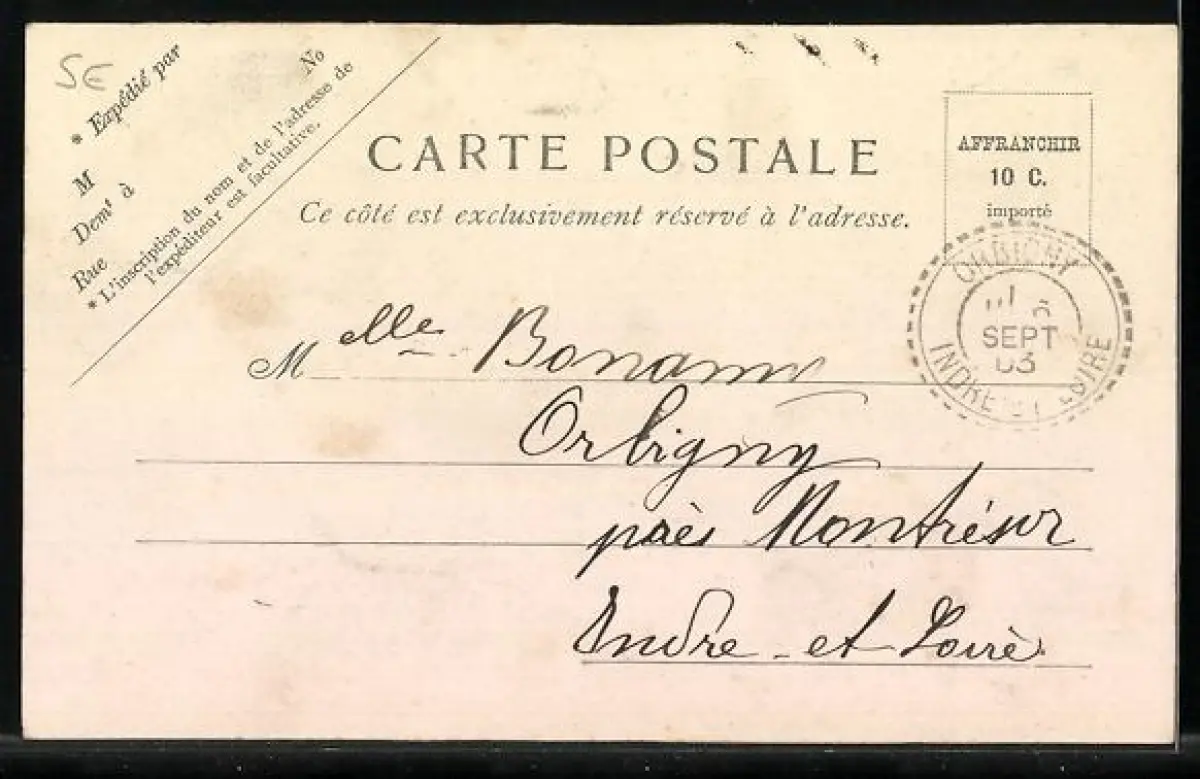 5€
* Expédié par
M
No
Demᵗ à
Rue
* L'inscription du nom et de l'adresse de
l'expéditeur est facultative.
CARTE POSTALE
Ce côté est exclusivement réservé à l'adresse.
AFFRANCHIR
10 C.
importé
ORBIGNY
SEPT
03
INDRE ET LOIRE
Melle Bonamy
Orbigny
près Montrésor
Indre-et Loire